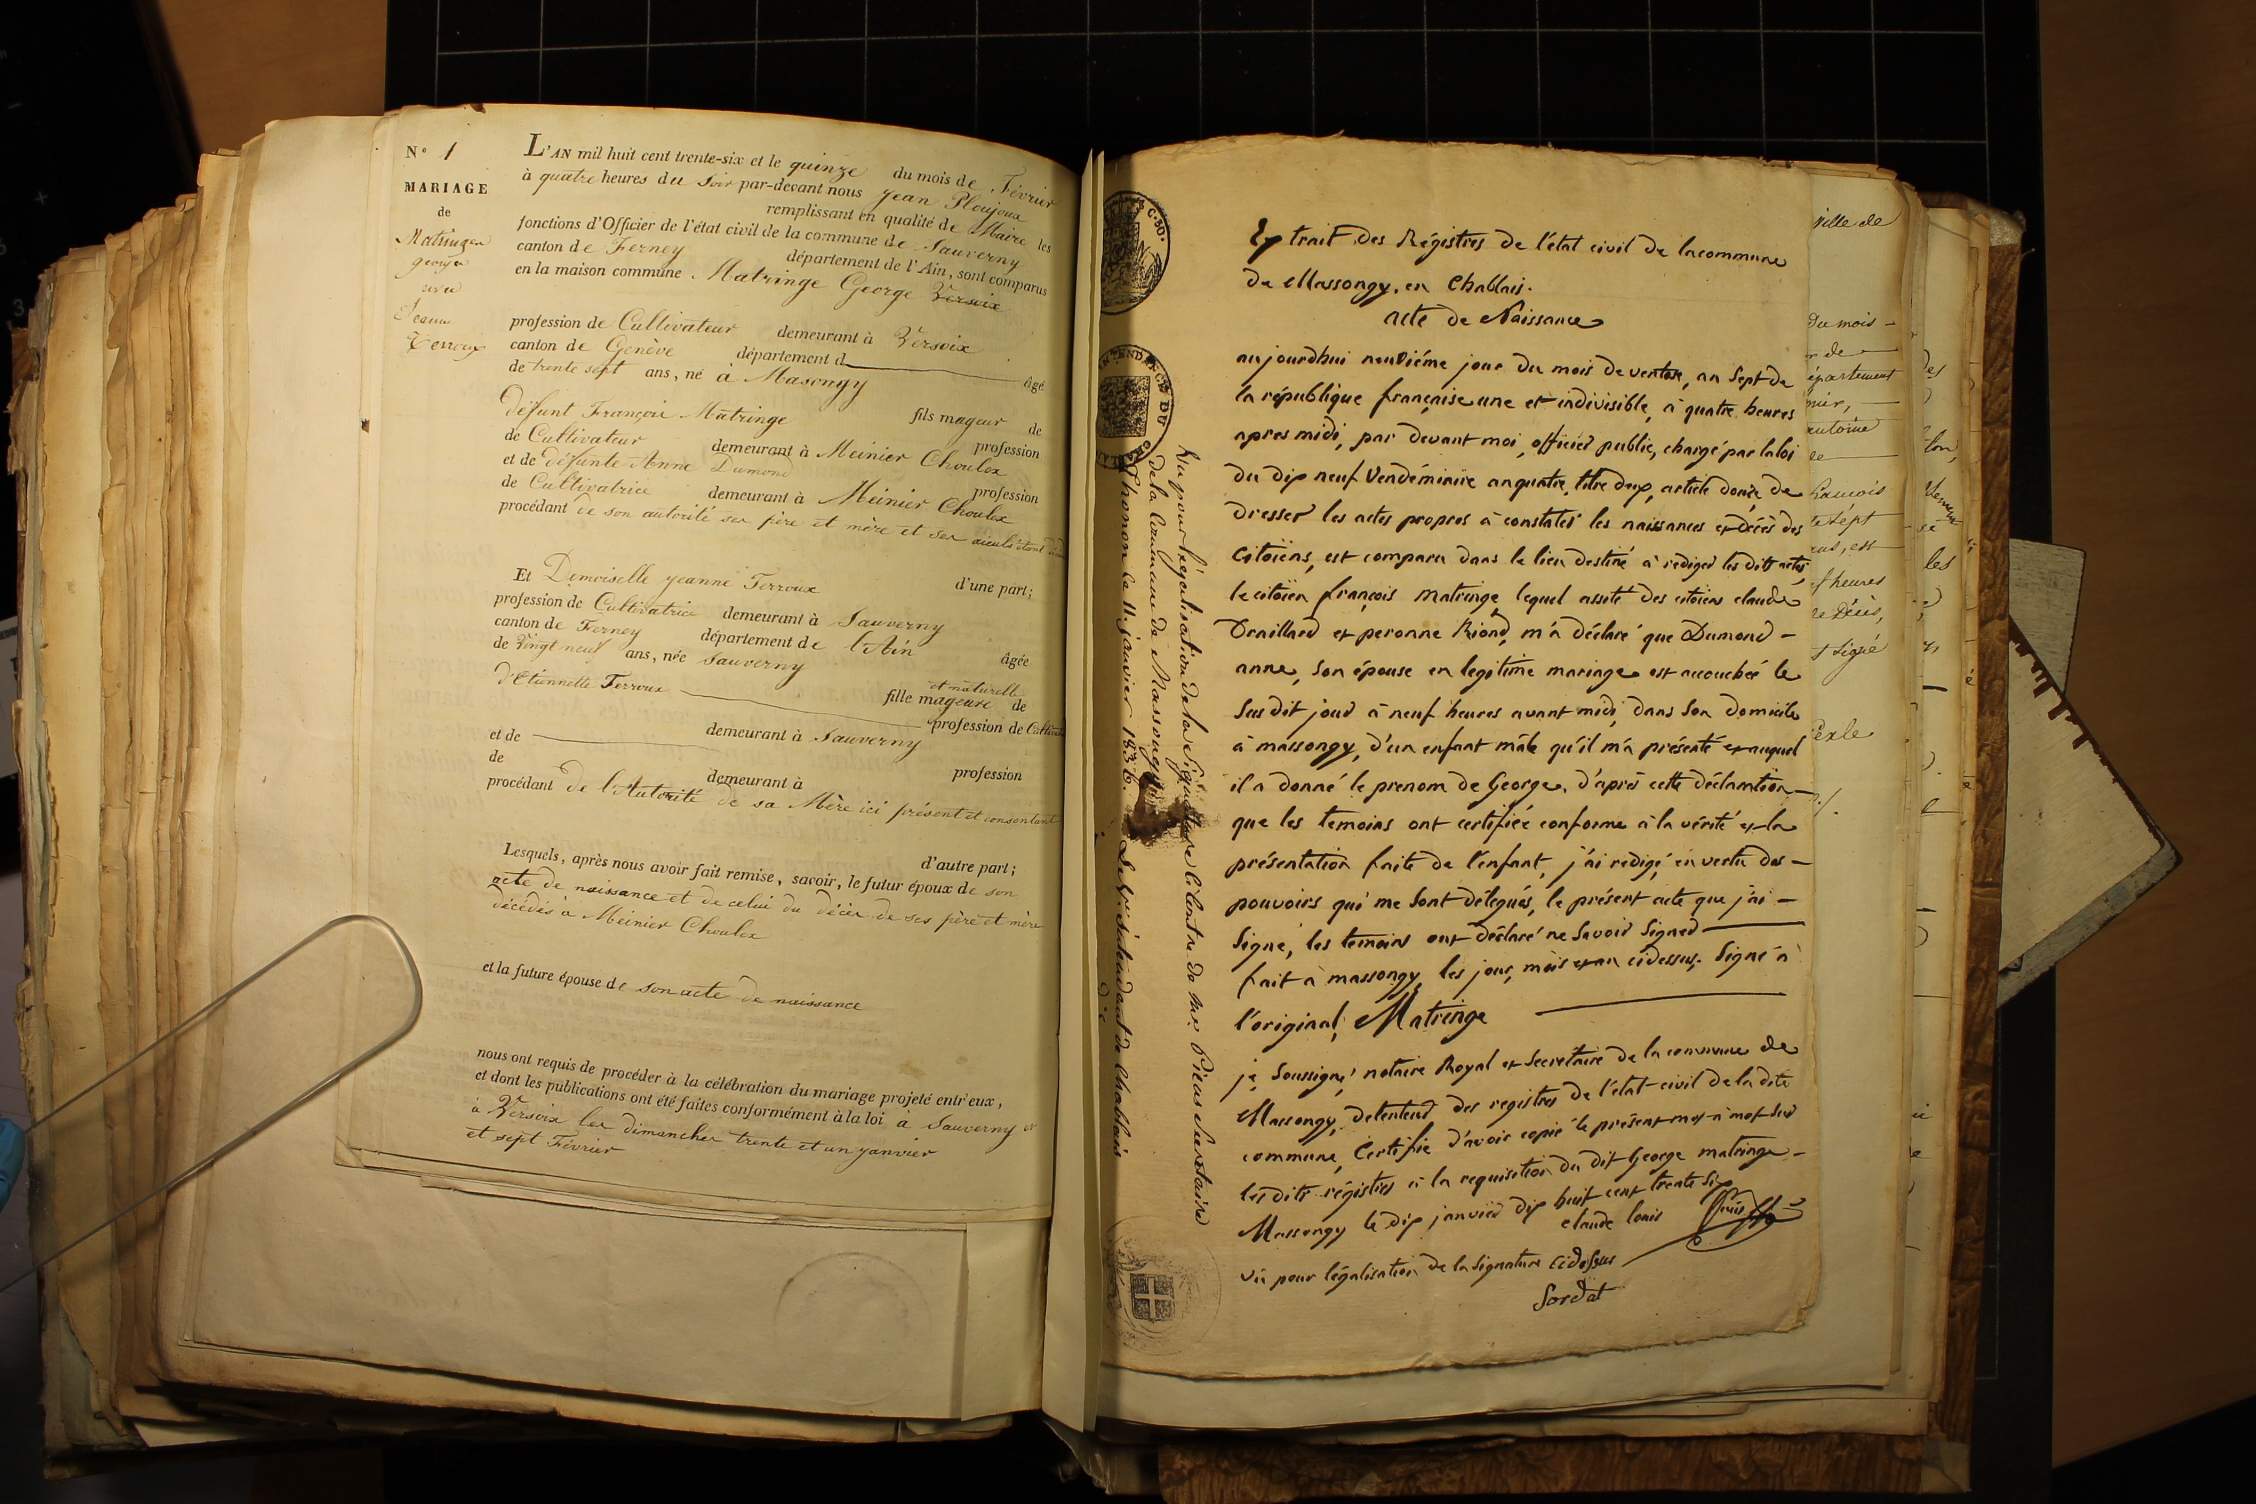 N° 1
MARIAGE
de
Matringe
george
avec
Jeanne
Terroux
L'AN mil huit cent trente-six et le quinze du mois de Février
à quatre heures du soir par-devant nous Jean Ploujoux
remplissant en qualité de Maire les
fonctions d'Officier de l'état civil de la commune de Sauverny
canton de Ferney département de l'Ain, sont comparus
en la maison commune. Matringe George Versoix
profession de Cultivateur demeurant à Versoix
canton de Genève département d
de trente sept ans, né à Masongy âgé
fils mageur de
défunt François Matringe profession
de Cultivateur demeurant à Meinier Choulex
et de défunte Anne Dumond profession
de Cultivatrice demeurant à Meinier Choulex
procédant de son autorité ses père et mère et ses aieuls étant
d'une part;
Et Demoiselle jeanne Terroux
profession de Cultivatrice demeurant à Sauverny
canton de Ferney département de l'Ain
de Vingt neuf ans, née Sauverny âgée
et naturelle
fille mageure de
d'Etiennette Terroux profession de
demeurant à Sauverny
et de profession
de demeurant à
procédant de l'Autorité de sa Mère ici présent et consentant
d'autre part;
Lesquels, après nous avoir fait remise, savoir, le futur époux de son
acte de naissance et de celui du décès de ses père et mère
décédés à Meinier Choulex
et la future épouse de son acte de naissance
nous ont requis de procéder à la célébration du mariage projeté entr'eux,
et dont les publications ont été faites conformément à la loi à Sauverny et
à Versoix les dimanches trente et un janvier
et sept Février
Extrait des Régistres de l'état civil de la commune
de Massongy, en Chablais.
acte de Naissance
aujourdhui neuvième jour du mois de ventose, an sept de
la république française une et indivisible, à quatre heures
apres midi, par devant moi, officier public, chargé par la loi
du dix neuf Vendémiaire an quatre, titre deux, article douze, de
dresser les actes propres à constater les naissances et décès des
citoïens, est comparu dans le lieu destiné à rediger les dits actes,
le citoïen françois matringe, lequel assisté des citoiens claude
Draillard et peronne Riond, m'a déclaré que Dumond
anne, son épouse en legitime mariage est accouchée le
sus dit jour à neuf heures avant midi, dans son domicile
à massongy, d'un enfant mâle qu'il m'a présenté et auquel
il a donné le prenom de George. d'après cette déclaration
que les temoins ont certifiée conforme à la vérité et la
présentation faite de l'enfant, j'ai redigé, en vertu des
pouvoirs qui me sont délégués, le présent acte que j'ai
signé, les temoins ont déclaré ne savoir signer
fait à massongy, les jour, mois et an cidessus. Signé à
l'original, Matringe
je soussigné notaire Royal et secretaire de la commune de
Massongy, detenteur des registres de l'état civil de la dite
commune, Certifie d'avoir copié le présent mot à mot sur
les dits régistres à la requisition du dit George matringe
Massongy le dix janvier dix huit cent trente six
claude louis
vu pour légalisation de la signature cidessus
Sordat
Vu pour légalisation de la Signature ci contre de Mr. Secretaire
de la Commune de Massongy
Thonon le 11. janvier 1836.
L'Intendant de Chablais
INTENDANCE DU
C. 80.
ville de
du mois
département
heures
Signé